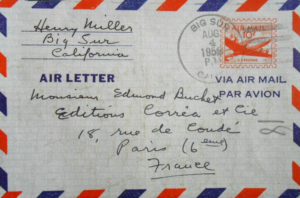 Henry Miller
Big Sur
California
BIG SUR
AUG
4
195
P.M.
10¢
AIR LETTER
VIA AIR MAIL
PAR AVION
Monsieur Edmond Buchet
Editions Corrêa et Cie
18, rue de Condé
Paris (6eme)
France